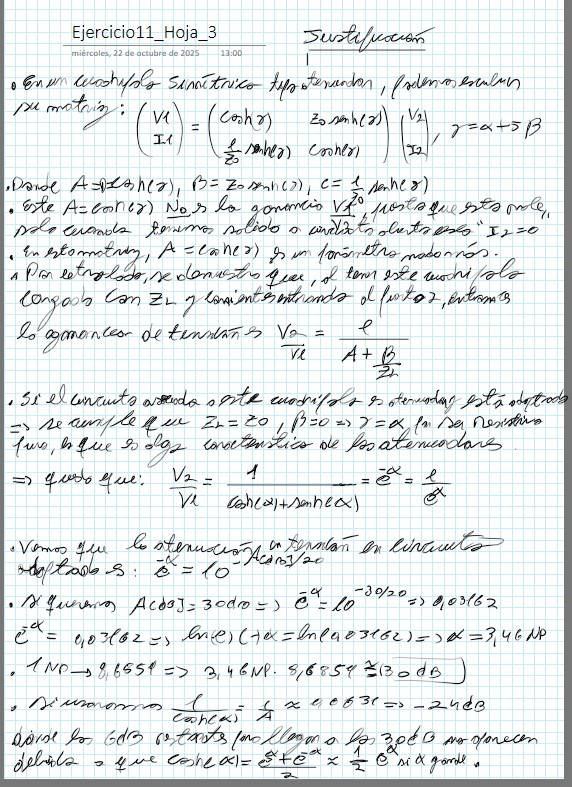 Ejercicio11_Hoja_3
Justificación
miércoles, 22 de octubre de 2025 13:00
• En un cuadripolo Simétrico tipo atenuador, podemos escribir
su matriz: (V1 I1) = (cosh(γ) Z0 senh(γ) 1/Z0 senh(γ) cosh(γ)) (V2 I2), γ=α+jβ
• Donde A=D=cosh(γ), B=Z0 senh(γ), C=1/Z0 senh(γ)
• Este A=cosh(γ) No es la ganancia V1/V2, puesto que esta vale,
solo cuando tenemos salida a circuito abierto esos "I2=0
• En esta matriz, A=cosh(γ) es un parámetro más.
• Por otro lado, se demuestra que, al tener este cuadripolo
cargado con ZL y corriente entrando al puerto 2, entonces
la ganancia de tensión es V2/V1 = 1/(A+B/ZL)
• Si el circuito a este cuadripolo es atenuador está adaptado
=> se cumple que ZL=Z0, β=0 => γ=α por ser resistivo
puro, lo que es algo característico de los atenuadores
=> queda que: V2/V1 = 1/(cosh(α)+senh(α)) = e^-α = 1/e^α
• Vemos que la atenuación en tensión en circuitos
adaptados es: e^-α = 10^-A[dB]/20
• Si queremos A[dB]=30dB => e^-α=10^-30/20 => 0,03162
e^-α = 0,03162 => ln(e)(-α=ln(0,03162) => α=3,46 NP
• 1 NP → 8,6859 => 3,46NP. 8,6859 ≈ 30 dB
• Si usaramos 1/cosh(α) = 1/A ≈ 0,0631 => -24dB
donde los 6dB restante para llegar a los 30dB no aparecen
debido a que cosh(α)= (e^α+e^-α)/2 ≈ 1/2 e^α si α grande.